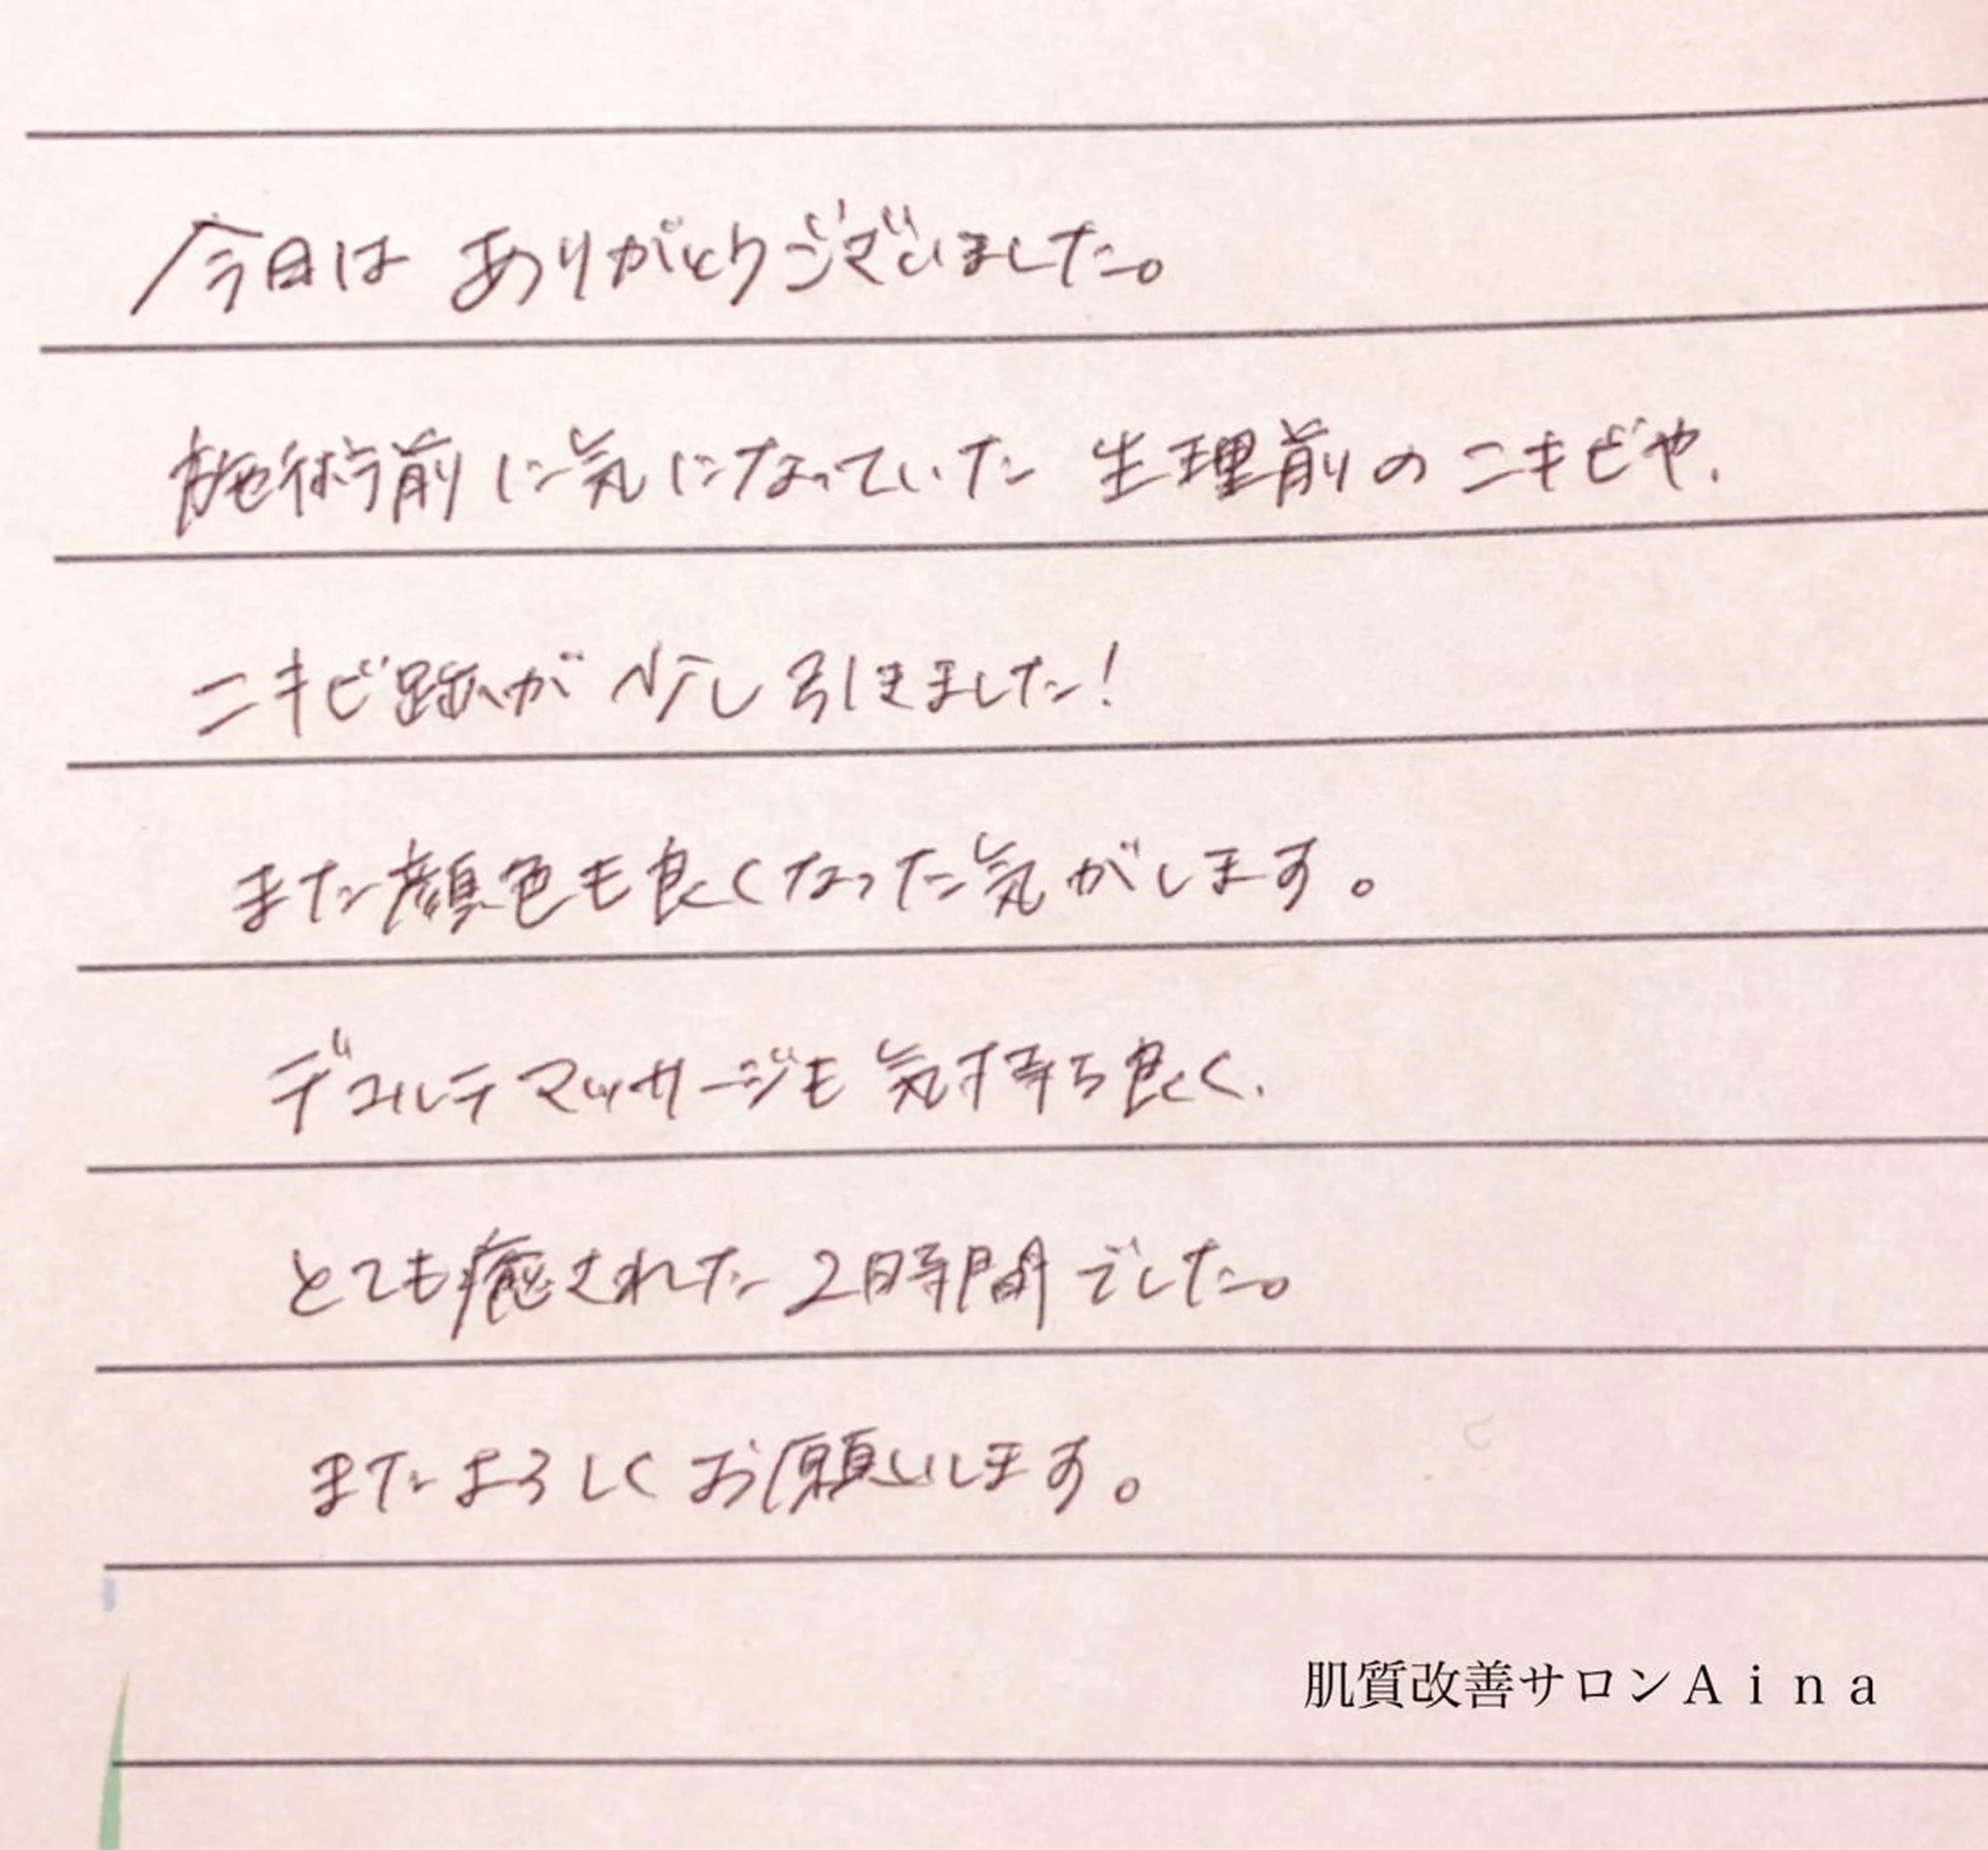 今日は ありがとうございました。
施術前に気になっていた 生理前のニキビや、
ニキビ跡が少し引きました!
また顔色も良くなった気がします。
デコルテマッサージも気持ち良く、
とても癒された2時間でした。
またよろしくお願いします。
肌質改善サロンAina